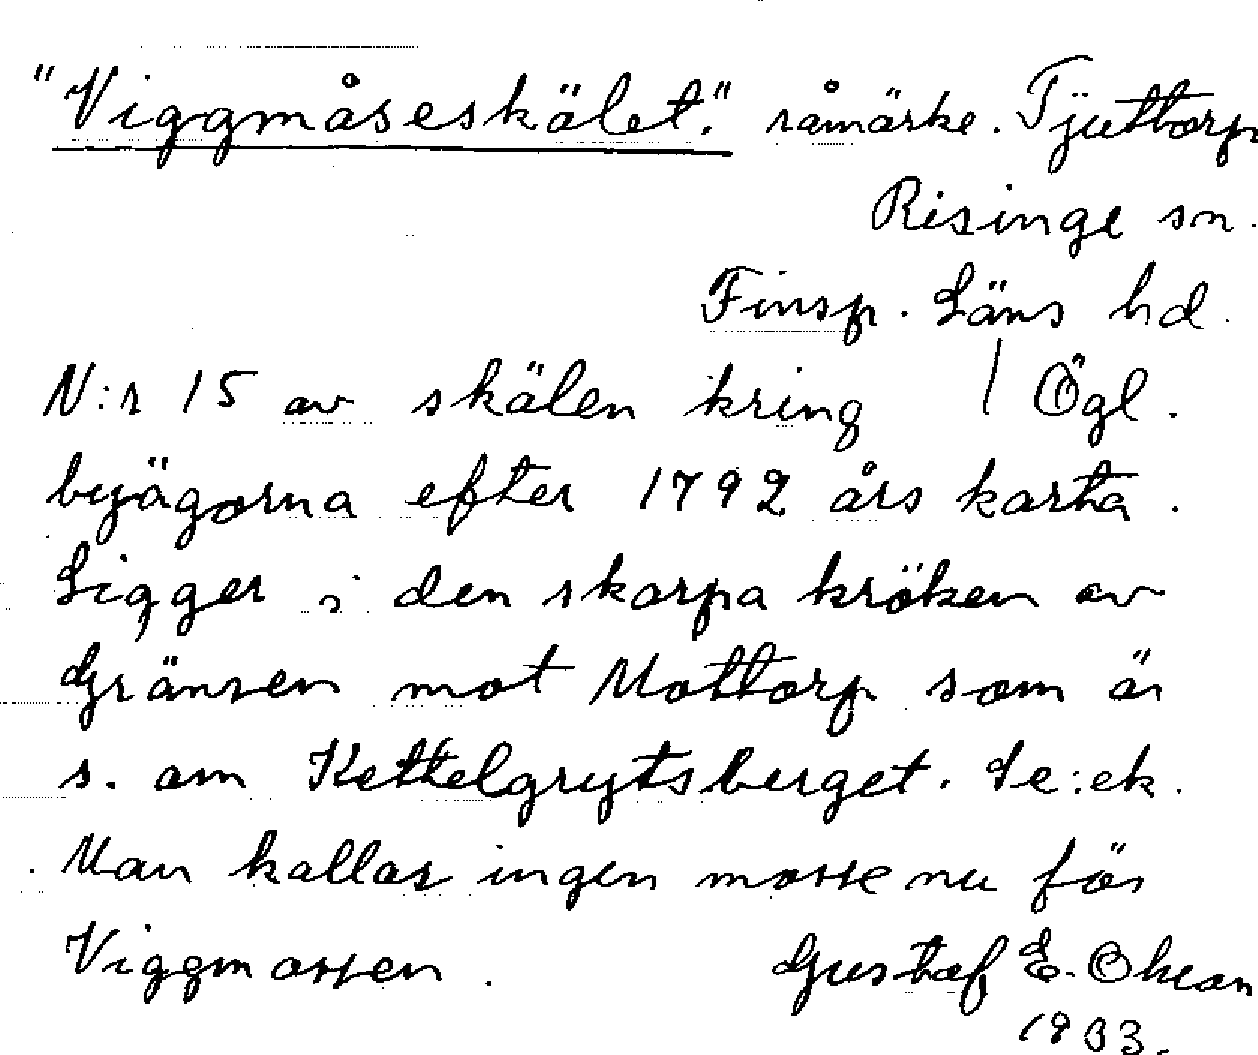 "Viggmåseskälet." råmärke. Tjuttorp
Risinge sn.
Finsp. Läns hd.
N:r 15 av skälen kring / Ögl.
byägorna efter 1792 års karta.
Ligger i den skarpa kröken av
Gränsen mot Mottorp som är
s. om Kettelgrytsberget. Se: ek.
Man kallar ingen mosse nu för
Viggmossen. Gustaf E. Ohean
1933.